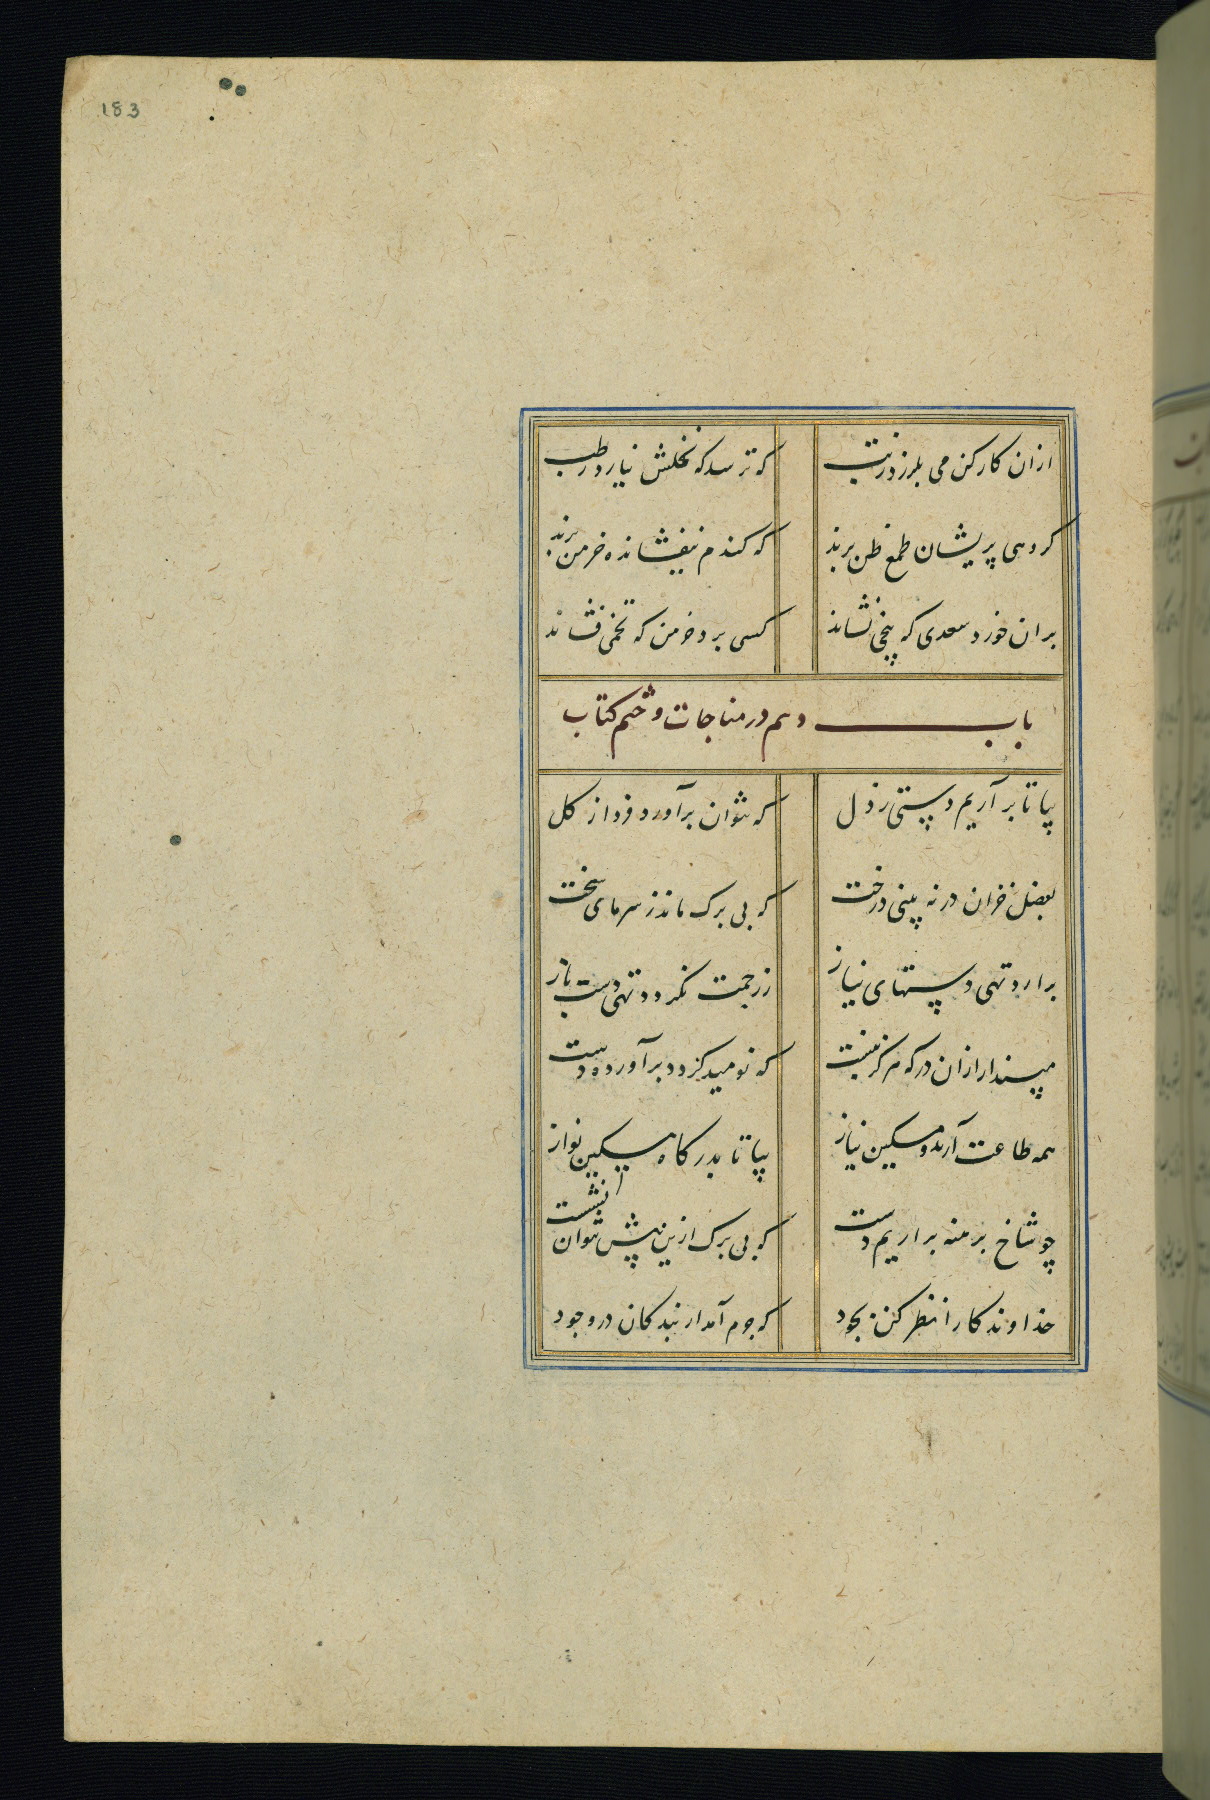 183
ازان کارکن می بلرزد زتب که ترسد که نخلش نیارد رطب
کروهی پریشان طمع ظن برند که کندم نیفشانده خرمن برند
بران خورد سعدی که بیخی نشاند کسی برد خرمن که تخمی فشاند
باب دهم در مناجات و ختم کتاب
بیا تا بر آریم دستی ز دل که نتوان برآورد فردا ز کل
بفصل خزان در نه بینی درخت که بی برک ماند ز سرمای سخت
برارد تهی دستهای نیاز ز رحمت نکردد تهی دست باز
مپندار ازان در که هرکز نبست که نومید کردد برآورده دست
همه طاعت آرند و مسکین نیاز بیا تا بدرکاه مسکین نواز
چو شاخ برهنه براریم دست که بی برک ازین پیش نتوان نشست
خداوندکارا نظر کن بجود که جرم آمد از بندکان در وجود